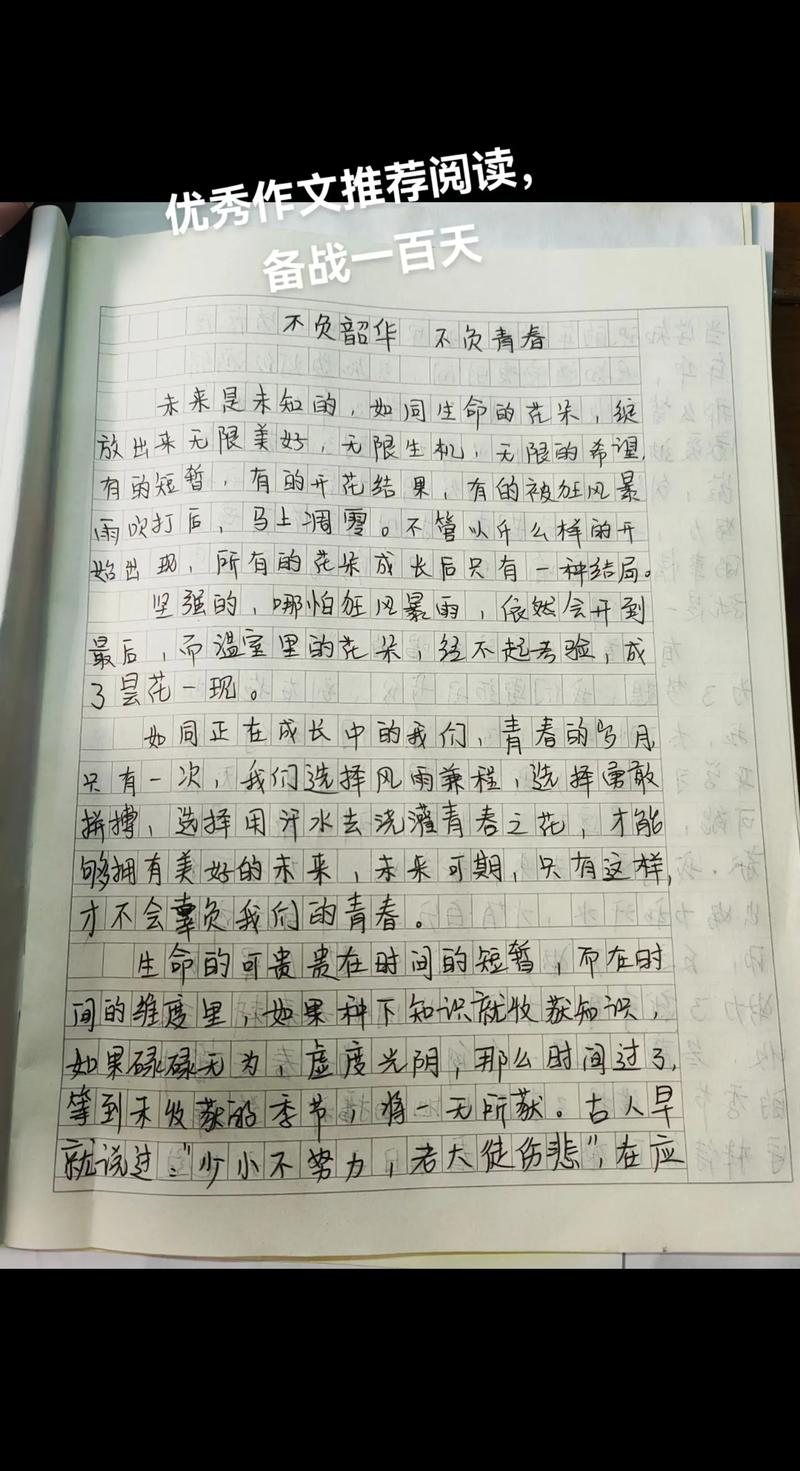 优秀作文推荐阅读，
备战一百天
不负韶华 不负青春
未来是未知的，如同生命的花朵，绽
放出来无限美好，无限生机，无限的希望，
有的短暂，有的开花结果，有的被狂风暴
雨吹打后，马上凋零。不管以什么样的开
始出现，所有的花朵成长后只有一种结局。
坚强的，哪怕狂风暴雨，依然会开到
最后，而温室里的花朵，经不起考验，成
了昙花一现。
如同正在成长中的我们，青春的岁月
只有一次，我们选择风雨兼程，选择勇敢
拼搏，选择用汗水去浇灌青春之花，才能
够拥有美好的未来，未来可期，只有这样，
才不会辜负我们的青春。
生命的可贵贵在时间的短暂，而在时
间的维度里，如果种下知识就收获知识，
如果碌碌无为，虚度光阴，那么时间过了，
等到未收获的季节，将一无所获。古人早
就说过："少小不努力，老大徒伤悲"，在应